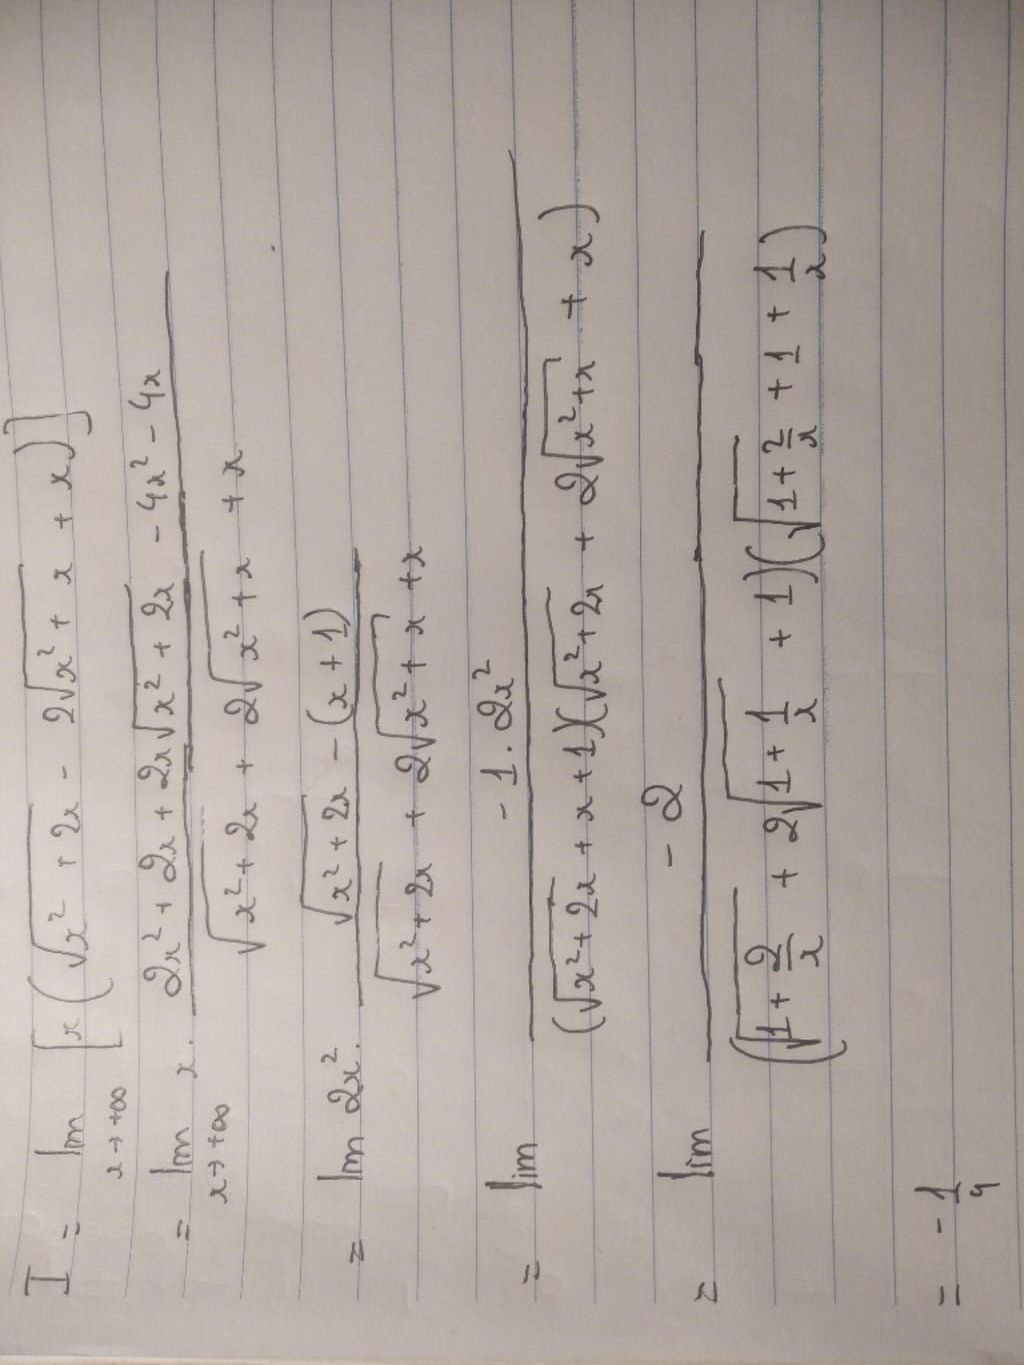 I = lim [x(√x² + 2x - 2√x² + x + x)]
x → +∞
= lim x. 2x² + 2x + 2x√x² + 2x - 4x² - 4x
x → +∞ √x² + 2x + 2√x² + x + x
= lim 2x². √x² + 2x - (x + 1)
√x² + 2x + 2√x² + x + x
= lim -1. 2x²
(√x² + 2x + x + 1)(√x² + 2x + 2√x² + x + x)
= lim -2
(√1 + 2/x + 2√1 + 1/x + 1)(√1 + 2/x + 1 + 1/x)
= - 1/4